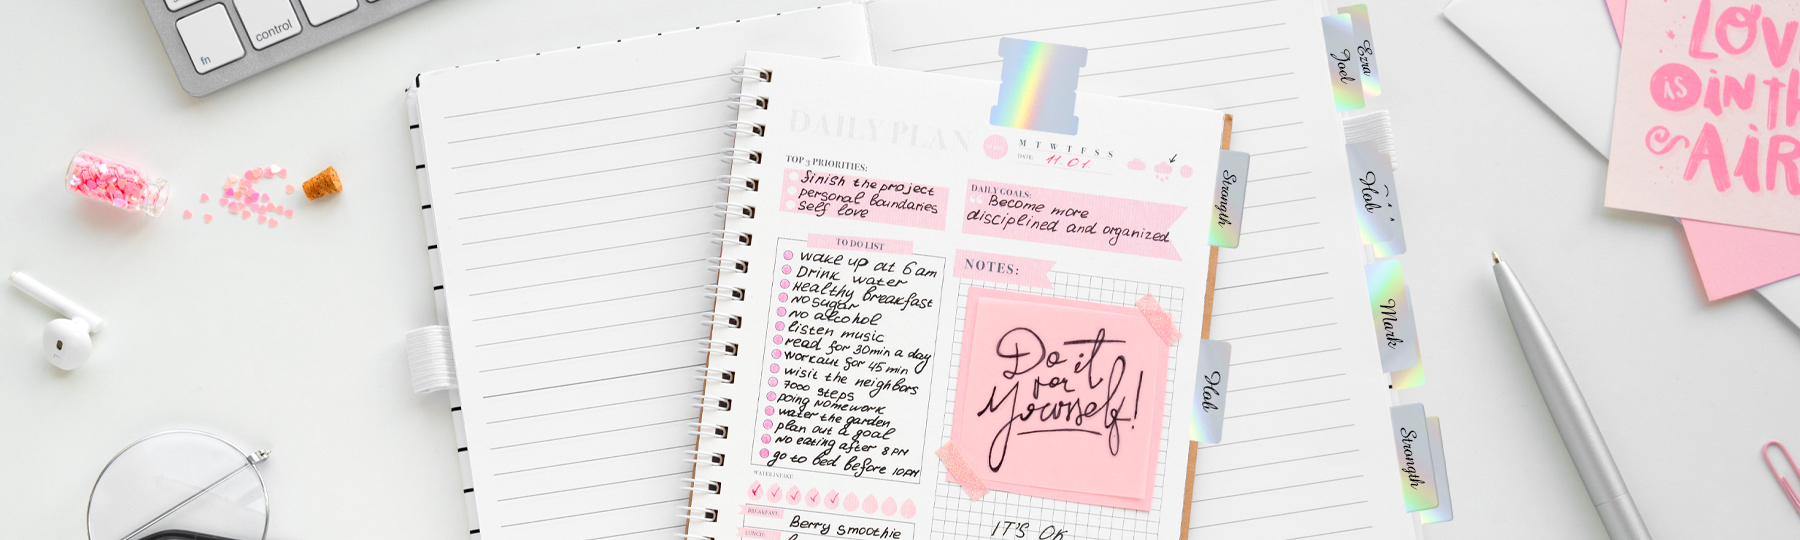 fn
control
DAILY PLAN
M T W T F S S
DATE: 11.01
TOP 3 PRIORITIES:
finish the project
personal boundaries
self love
DAILY GOALS:
Become more
disciplined and organized
TO DO LIST
wake up at 6 am
Drink water
Healthy breakfast
NO sugar
no alcohol
listen music
read for 30min a day
workout for 45 min
wisit the neighbors
7000 steps
Doing homework
water the garden
plan out a goal
NO eating after 8 PM
go to bed before 10PM
WATER INTAKE
BREAKFAST:
Berry smoothie
LUNCH:
NOTES:
Do it
for
Yourself!
IT'S OK
Strength
Hab
Ezra
Joel
Hab
Mark
Strongth
LOV
IS IN TH
AIR